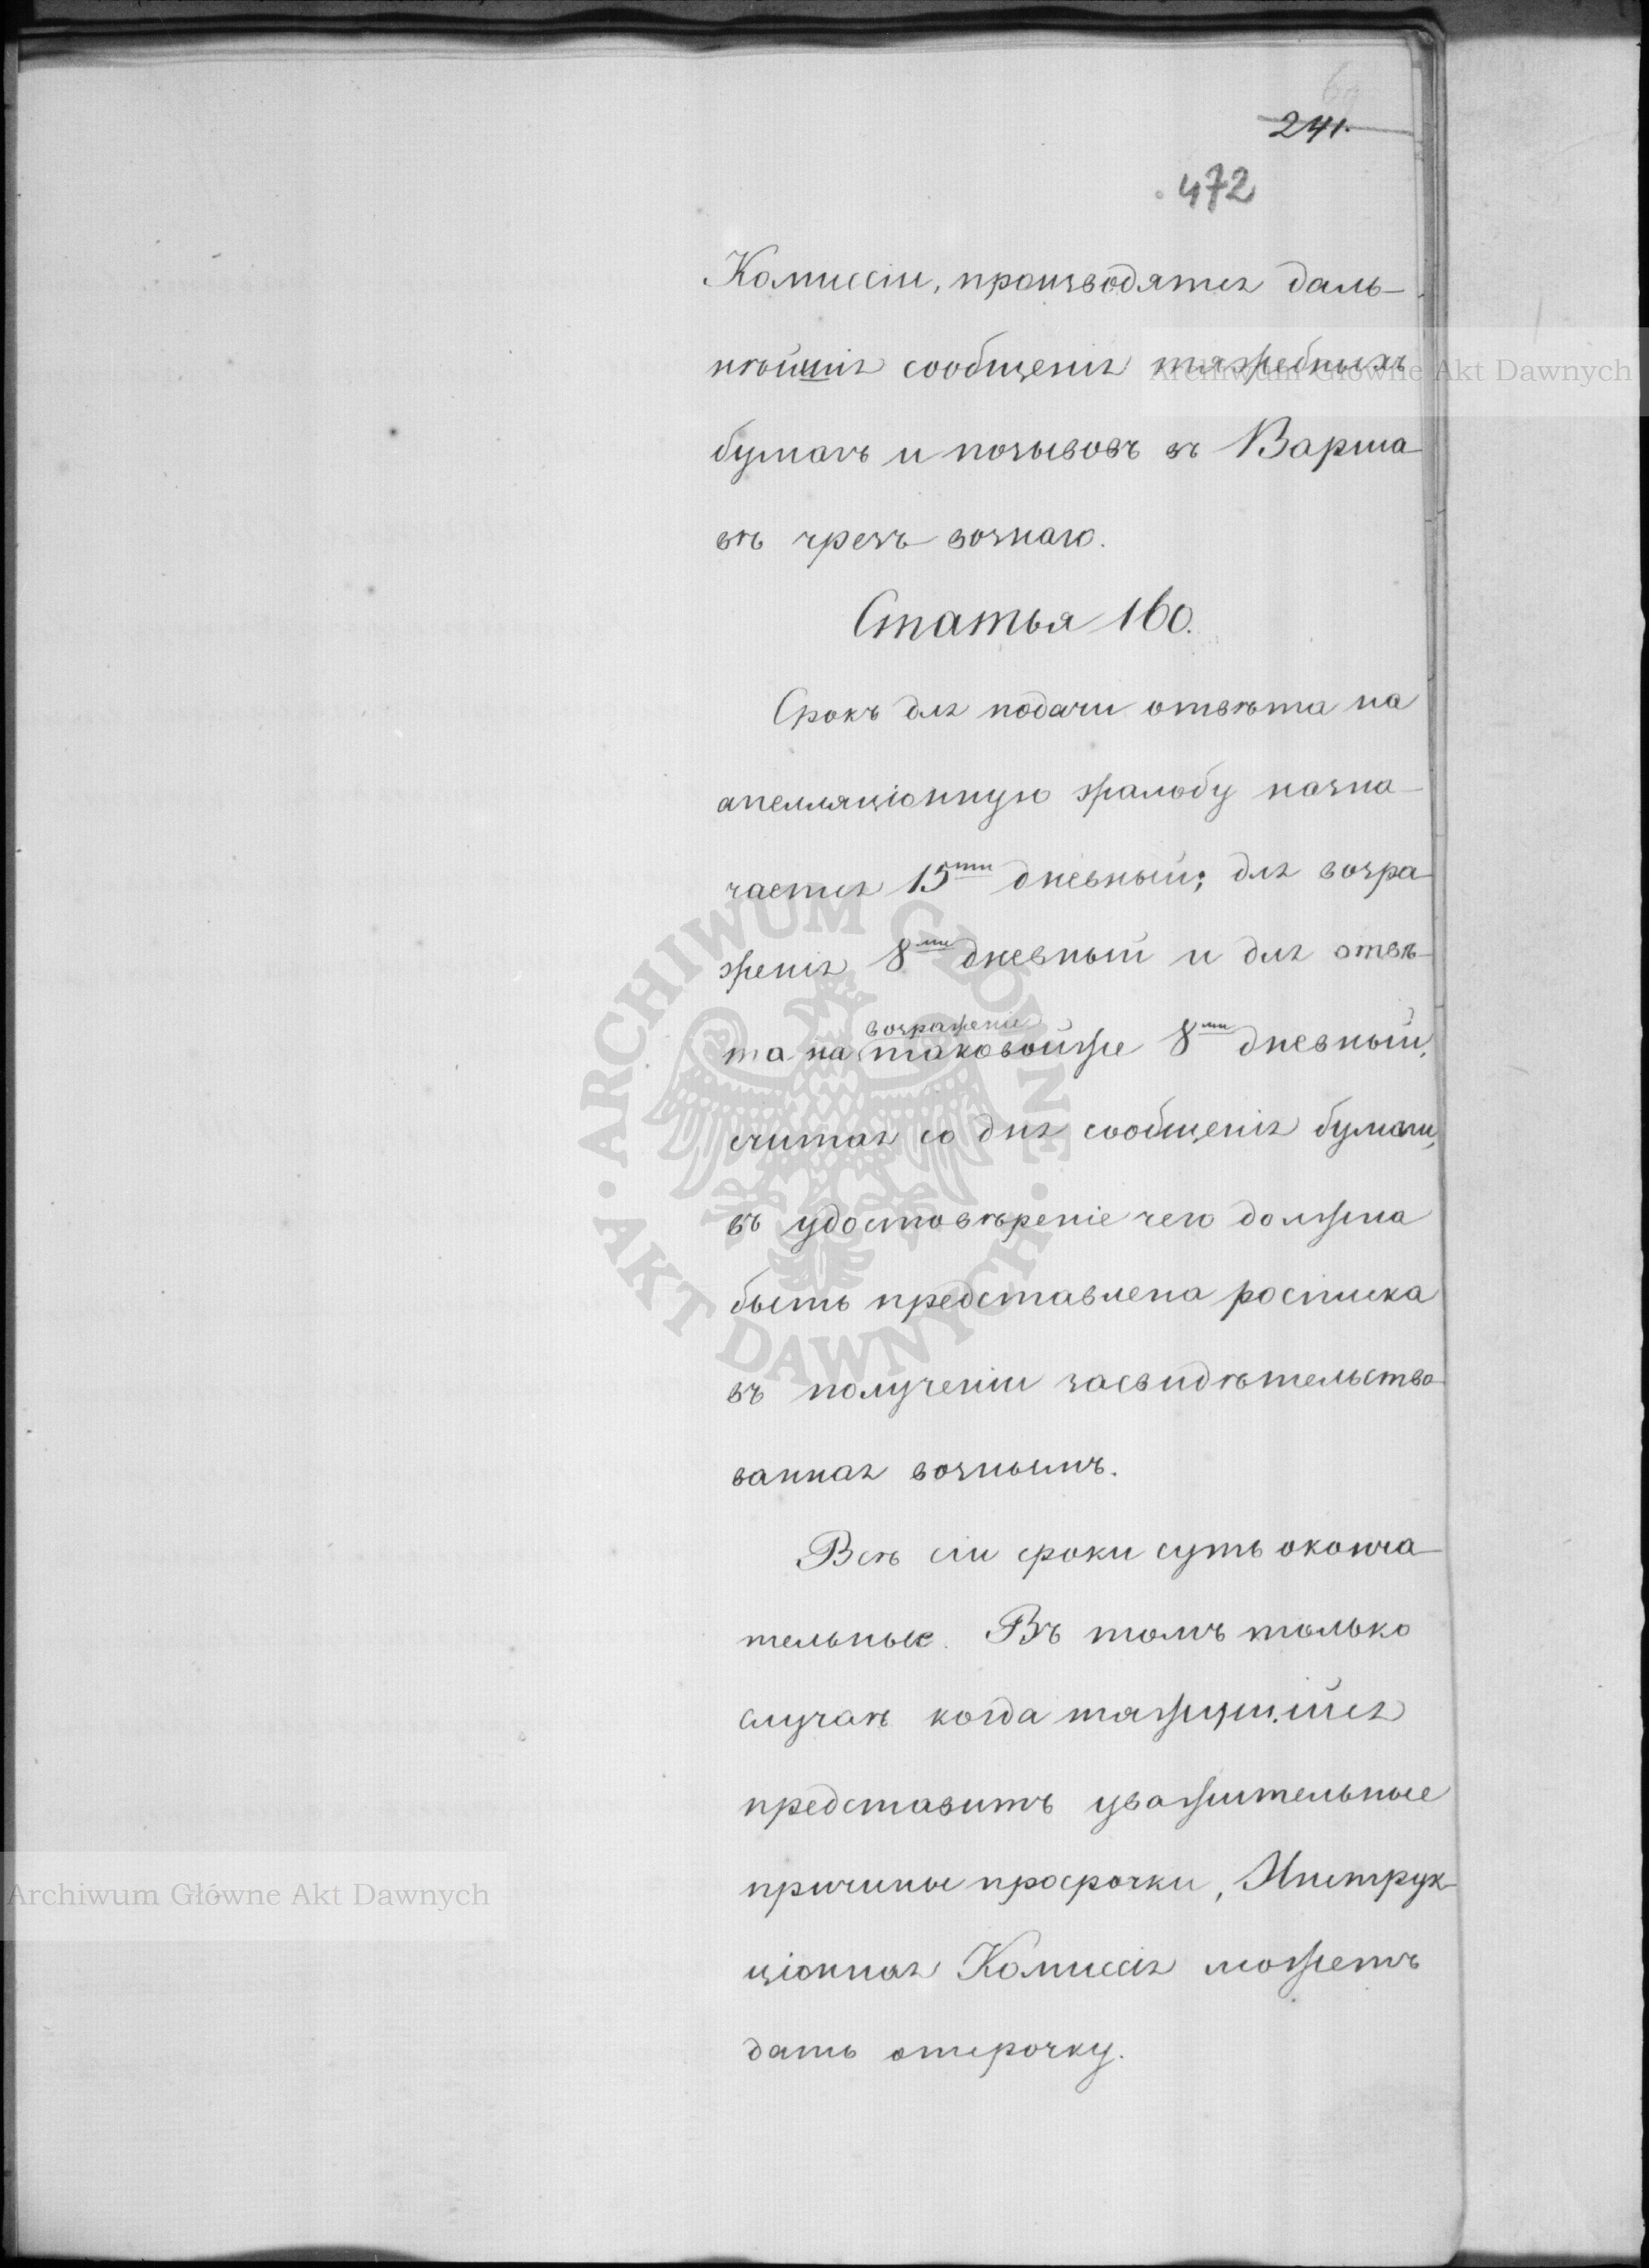 69
241.
472
Комиссіи, производятся даль-
нѣйшія сообщенія тяжебныхъ
бумагъ и позывовъ въ Варша-
вѣ чрезъ вознаго.
Статья 160.
Срокъ для подачи отвѣта на
апелляціонную жалобу назна-
чается 15ти дневный; для возра-
женія 8ми дневный и для отвѣ-
возраженіе
та на таковойже 8ми дневный,
считая со дня сообщенія бумаги,
въ удостовѣреніе чего должна
быть представлена росписка
въ полученіи засвидѣтельство-
ванная вознымъ.
Всѣ сіи сроки суть оконча-
тельные. Въ томъ только
случаѣ когда тяжущійся
представитъ уважительные
причины просрочки, Инструк-
ціонная Комиссія можетъ
дать отсрочку.
Archiwum Główne Akt Dawnych
ARCHIWUM GŁÓWNE · AKT DAWNYCH ·
Archiwum Główne Akt Dawnych